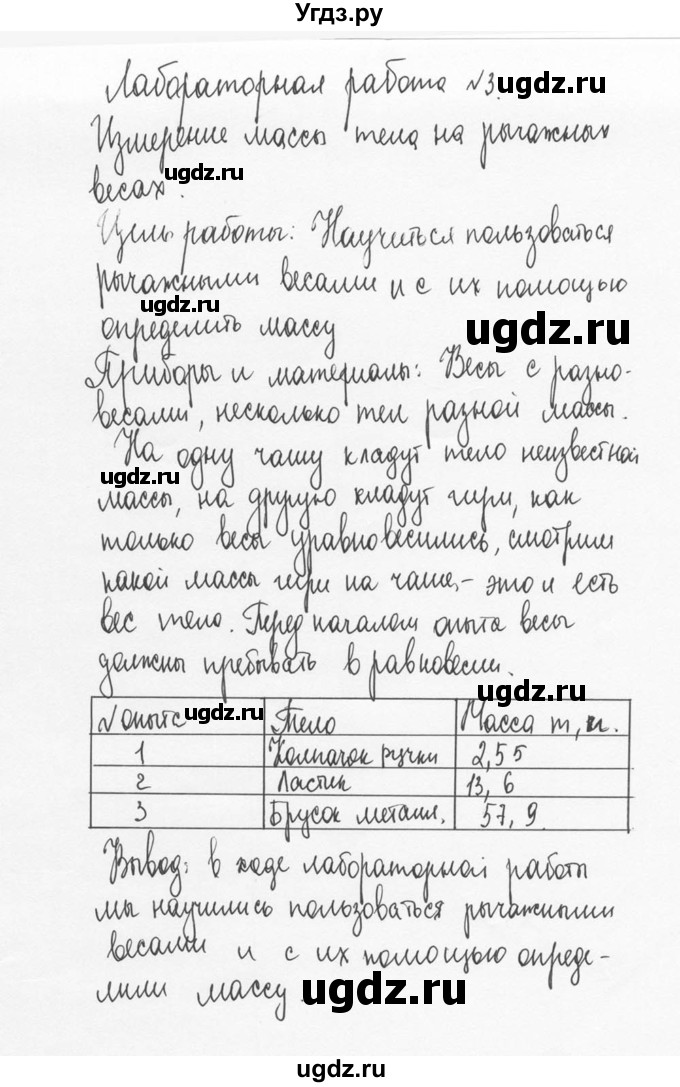 Угдз.ру
Лабораторная работа №3.
ugdz.ru
Измерение массы тела на рычажных
ugdz.ru
весах.
Цель работы: Научиться пользоваться
рычажными весами и с их помощью
ugdz.ru
определить массу
ugdz.ru
Приборы и материалы: Весы с разно-
весами, несколько тел разной массы.
На одну чашу кладут тело неизвестной
ugdz.ru
массы, на другую кладут гири, как
только весы уравновесились, смотрим
какой массы гири на чаше, - это и есть
вес тело. Перед началом опыта весы
должны пребывать в равновесии.
ugdz.ru
№ опыта ugdz.ru Тело Масса m, г.
1 Колпачок ручки 2,55
2 Ластик 13,6
3 Брусок металл. 57,9
Вывод: в ходе лабораторной работы
мы научились пользоваться рычажными
весами и с их помощью опреде-
лили массу.
ugdz.ru
ugdz.ru